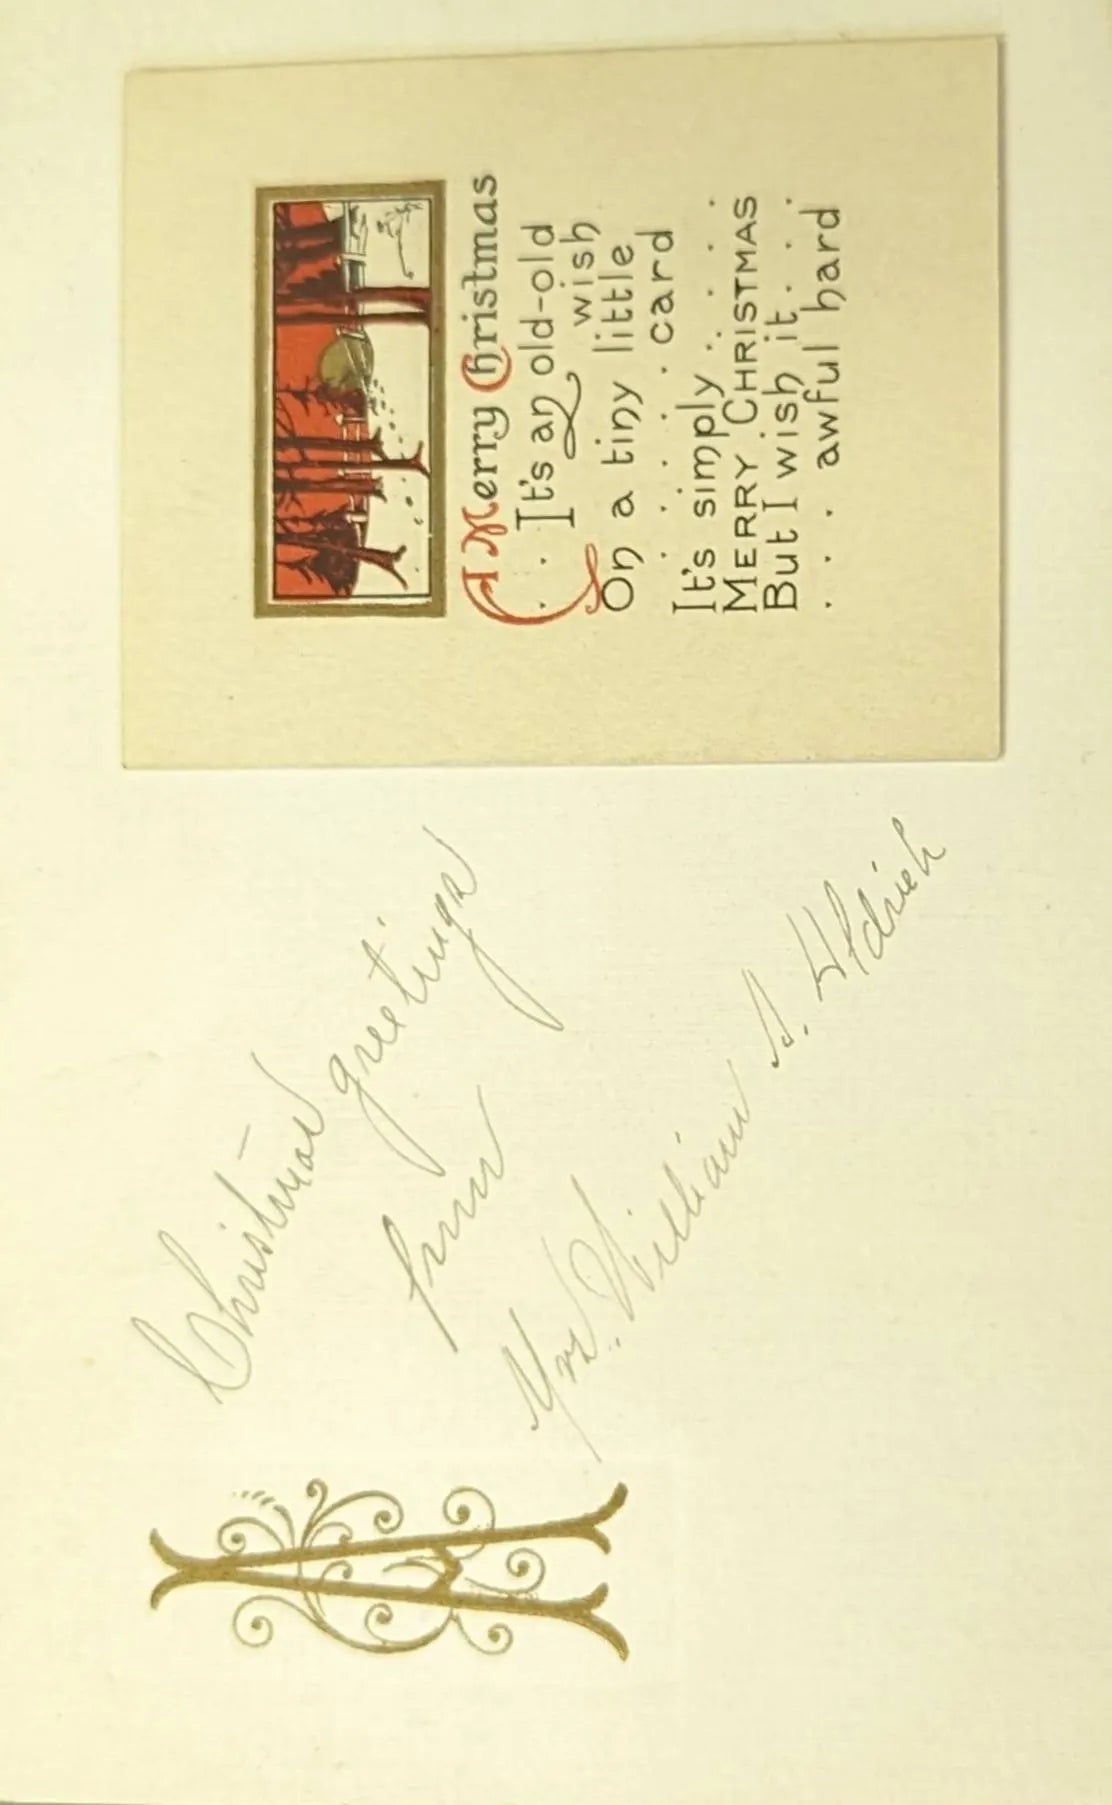 A
Christmas greetings
from
Mrs. William S. Aldrich
A Merry Christmas
. . It's an old-old
wish
On a tiny little
. . . . . card
It's simply . . . . .
MERRY CHRISTMAS
But I wish it . . .
. . . . awful hard